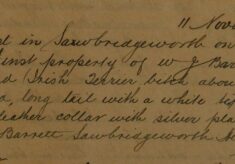 11 Nov
st in Sawbridgeworth on
inst property of W J Barr
d Irish Terrier bitch about
d, long tail with a white tip
leather collar with silver pla
Barrett Sawbridgeworth